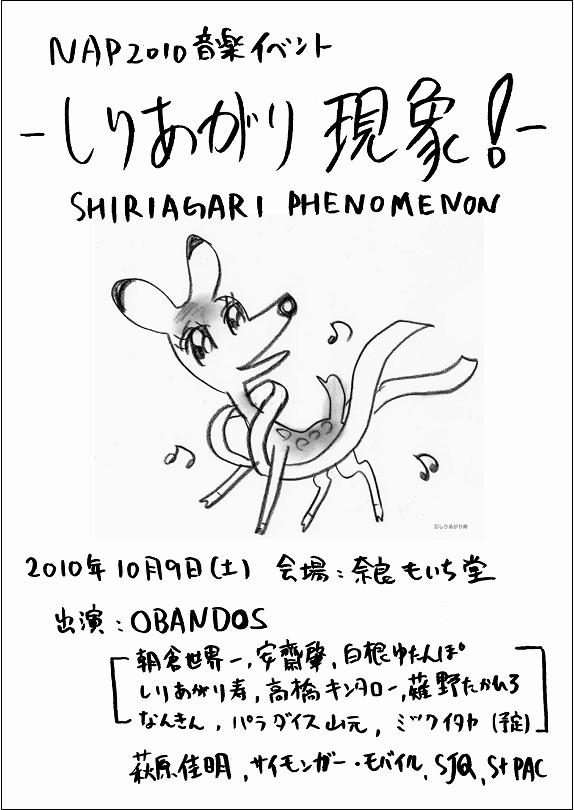 NAP2010音楽イベント
-しりあがり現象!-
SHIRIAGARI PHENOMENON
©しりあがり寿
2010年10月9日(土) 会場:奈良もいち堂
出演:OBANDOS
朝倉世界一,安齋肇,白根ゆたんぽ
しりあがり寿,高橋キンタロー,薙野たかひろ
なんきん,パラダイス山元,ミックイタヤ(予定)
萩原佳明,サイモンガー・モバイル,SJQ,St PAC